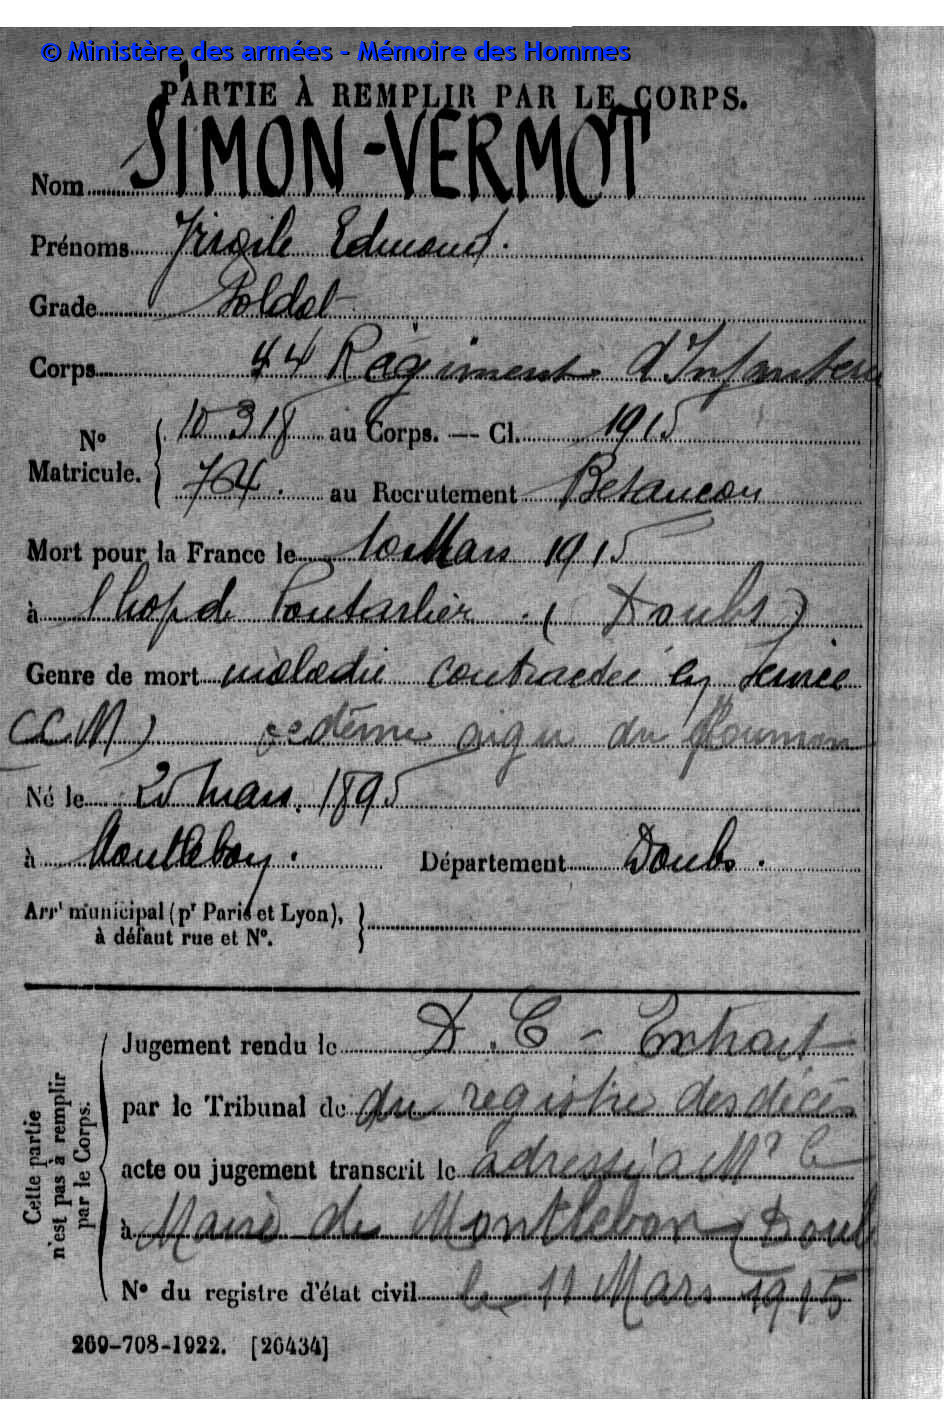 © Ministère des armées - Mémoire des Hommes
PARTIE À REMPLIR PAR LE CORPS.
Nom SIMON-VERMOT
Prénoms Virgile Edmond.
Grade Soldat
Corps 44 Régiment d'Infanterie
N° Matricule. 10318 au Corps. — Cl. 1915
764. au Recrutement Besançon
Mort pour la France le 10 Mars 1915
à l'hop de Pontarlier (Doubs)
Genre de mort maladie contractée en service
(C.M) oedème aigu du Poumon
Né le 25 mars 1895
à Montlebon. Département Doubs.
Arr^t municipal (p^r Paris et Lyon),
à défaut rue et N°.
Cette partie n'est pas à remplir par le Corps.
Jugement rendu le D.C - Extrait
par le Tribunal de du registre des décès
acte ou jugement transcrit le adressé à M^r le
à Maire de Montlebon (Doubs
N° du registre d'état civil le 11 Mars 1915
269-708-1922. [26434]